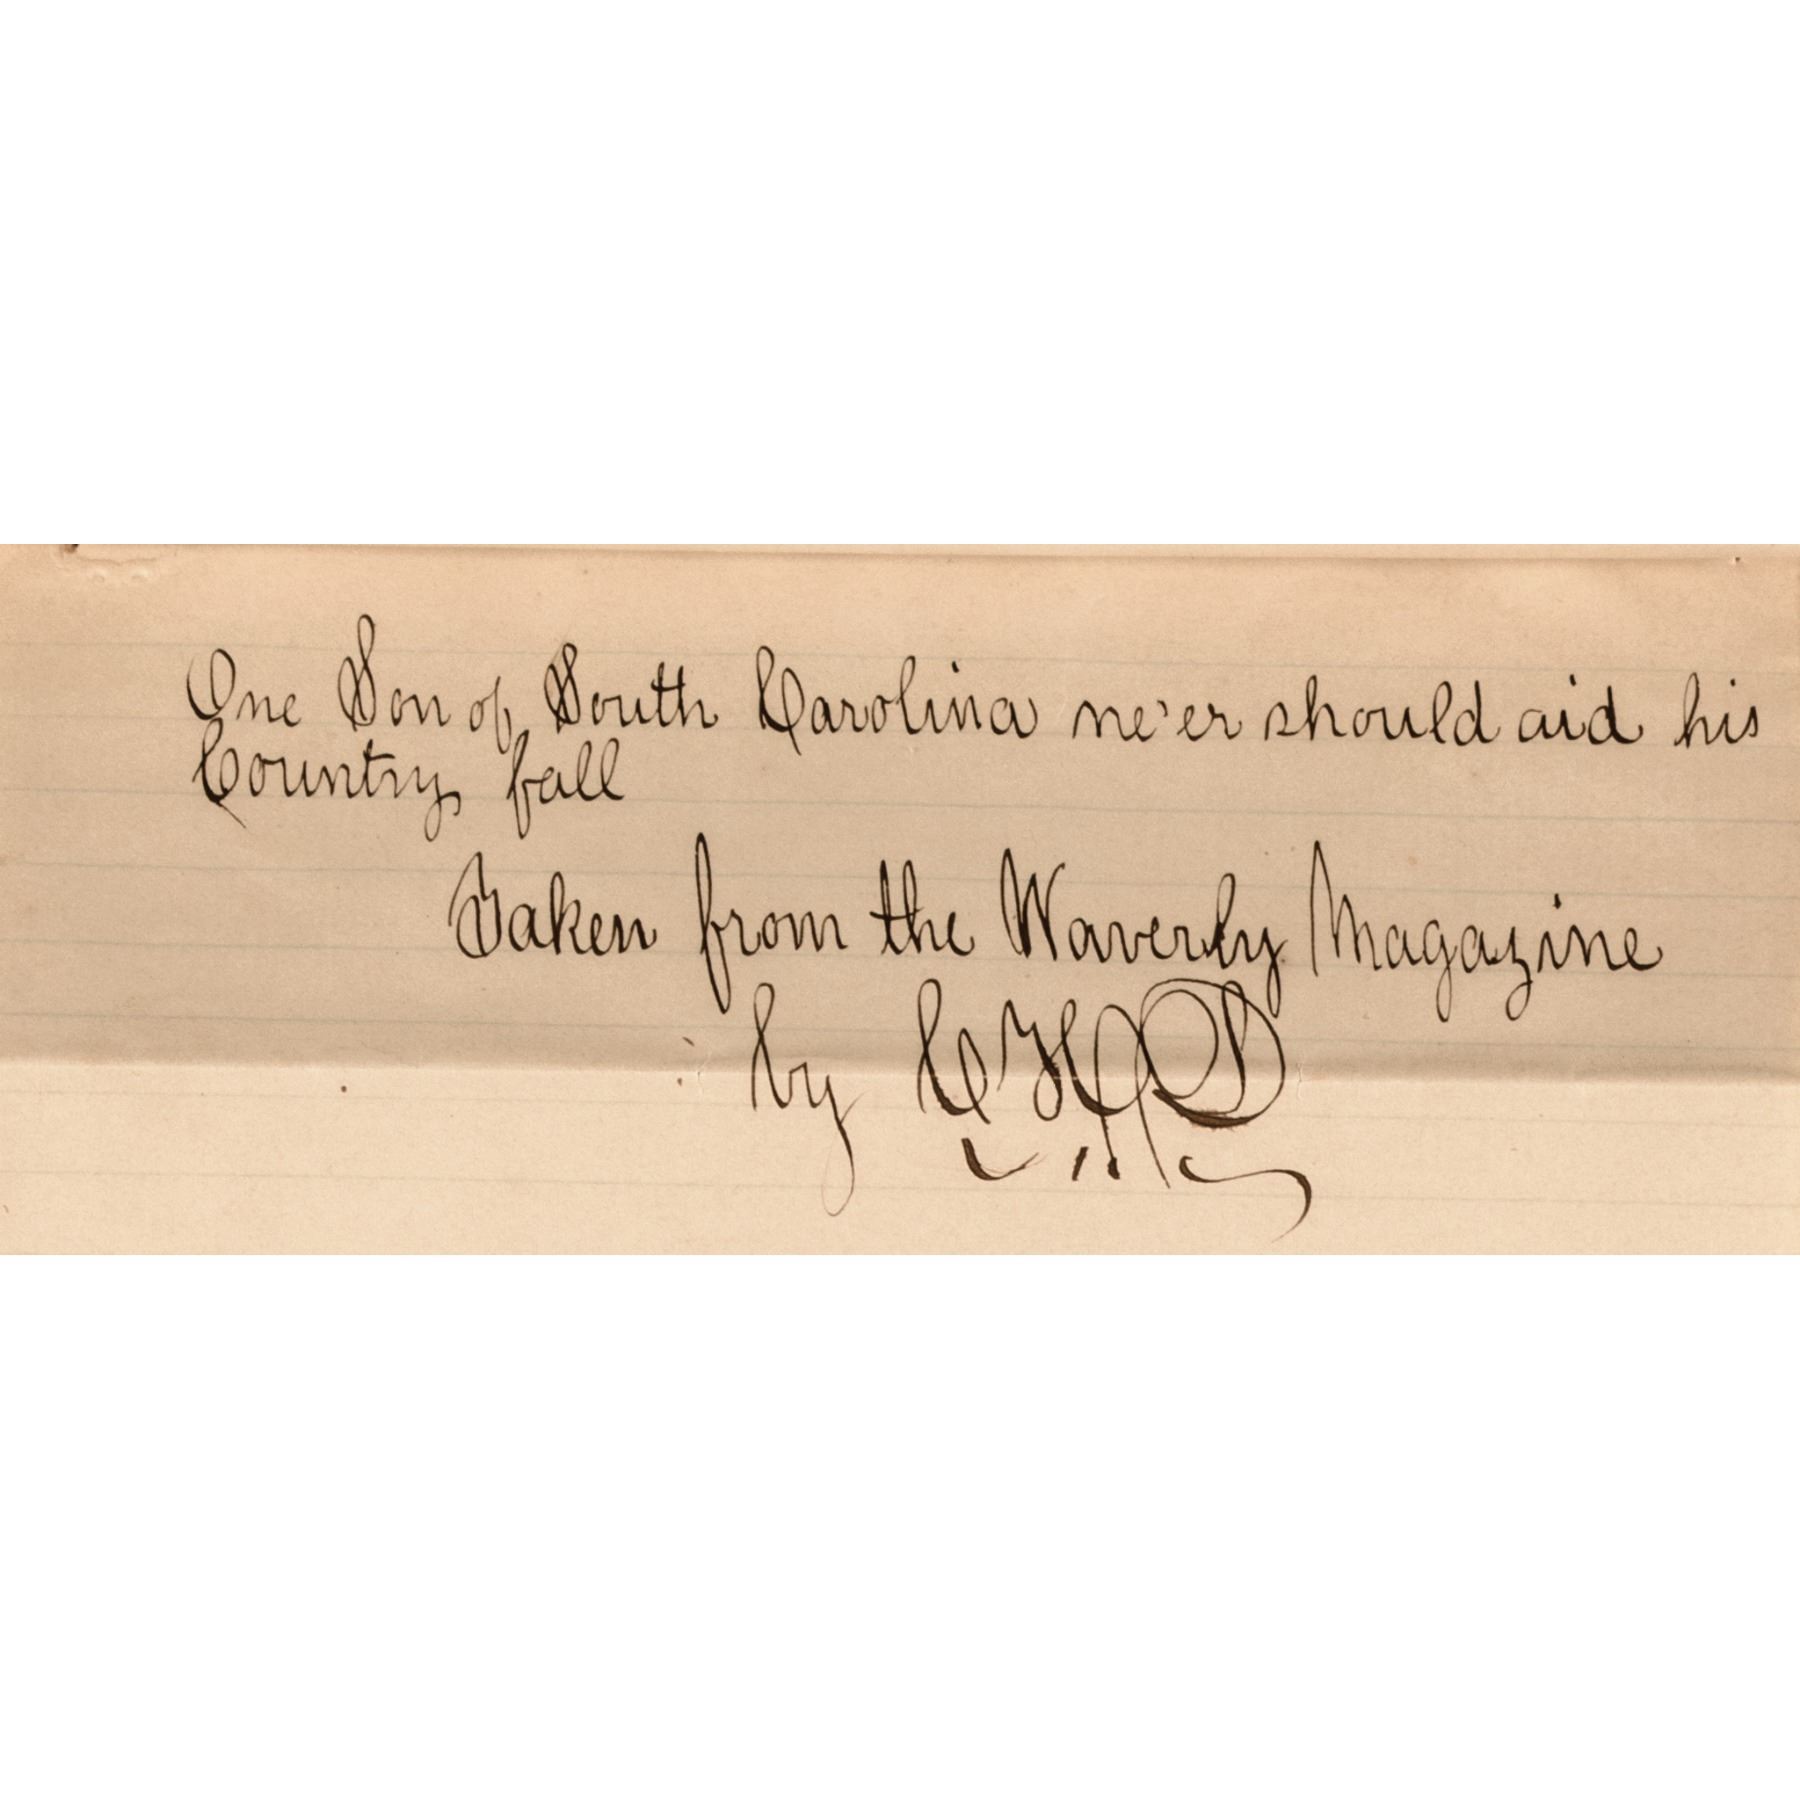 One Son of South Carolina ne'er should aid his
Countrys fall
Taken from the Waverly Magazine
by C H D